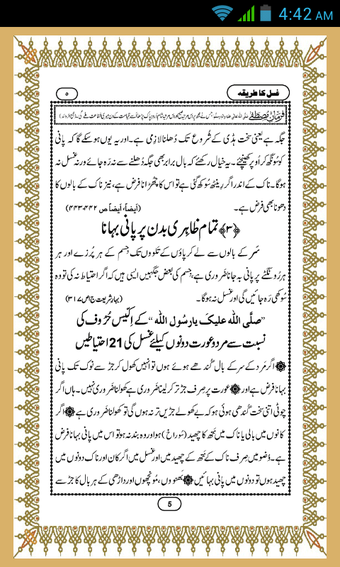 4:42 AM
غسل کا طریقہ
۵
جگہ ہے یعنی سخت ہڈی کے شروع تک دُھلنا لازِمی ہے۔ اور یہ یوں ہو سکے گا کہ پانی
کو سُونگھ کر اُوپر کھینچئے۔ یہ خیال رکھئے کہ بال برابر بھی جگہ دُھلنے سے نہ رَہ جائے ورنہ غسل نہ
ہو گا۔ ناک کے اندر اگر رِینٹھ سُوکھ گئی ہے تو اس کا چُھڑانا فرض ہے، نیز ناک کے بالوں کا
دھونا بھی فرض ہے۔ (اَیضاً، اَیضاً ص ۴۴۲،۴۴۳)
﴿۳﴾ تمام ظاہِری بدن پر پانی بہانا
سَر کے بالوں سے لے کر پاؤں کے تلووں تک جِسم کے ہر پُرزے اور ہر
ہر رُونگٹے پر پانی بہ جانا ضَروری ہے، جِسم کی بعض جگہیں ایسی ہیں کہ اگر احتیاط نہ کی تو وہ
سُوکھی رَہ جائیں گی اور غسل نہ ہو گا۔ (بہارِ شریعت ج۱ ص۳۱۷)
”صلَّی اللّٰہ علیکَ یا رسُول اللّٰہ“ کے اِکّیس حُرُوف کی
نسبت سے مرد و عورت دونوں کیلئے غسل کی 21 احتیاطیں
اگر مَرد کے سر کے بال گُندھے ہوئے ہوں تو اُنہیں کھول کر جڑ سے نوک تک پانی
بہانا فرض ہے اور عورت پر صِرف جڑ تر کر لینا ضَروری ہے کھولنا ضَروری نہیں۔ ہاں اگر
چوٹی اتنی سَخت گُندھی ہوئی ہو کہ بے کھولے جڑیں تر نہ ہوں گی تو کھولنا ضَروری ہے اگر
کانوں میں بالی یا ناک میں نَتھ کا چَھید (سُوراخ) ہو اور وہ بند نہ ہو تو اس میں پانی بہانا فرض
ہے۔ وُضو میں صِرف ناک کے نَتھ کے چَھید میں اور غسل میں اگر کان اور ناک دونوں میں
چَھید ہوں تو دونوں میں پانی بہائیں بَھنووں، مُونچھوں اور داڑھی کے ہر بال کا جڑ سے
5